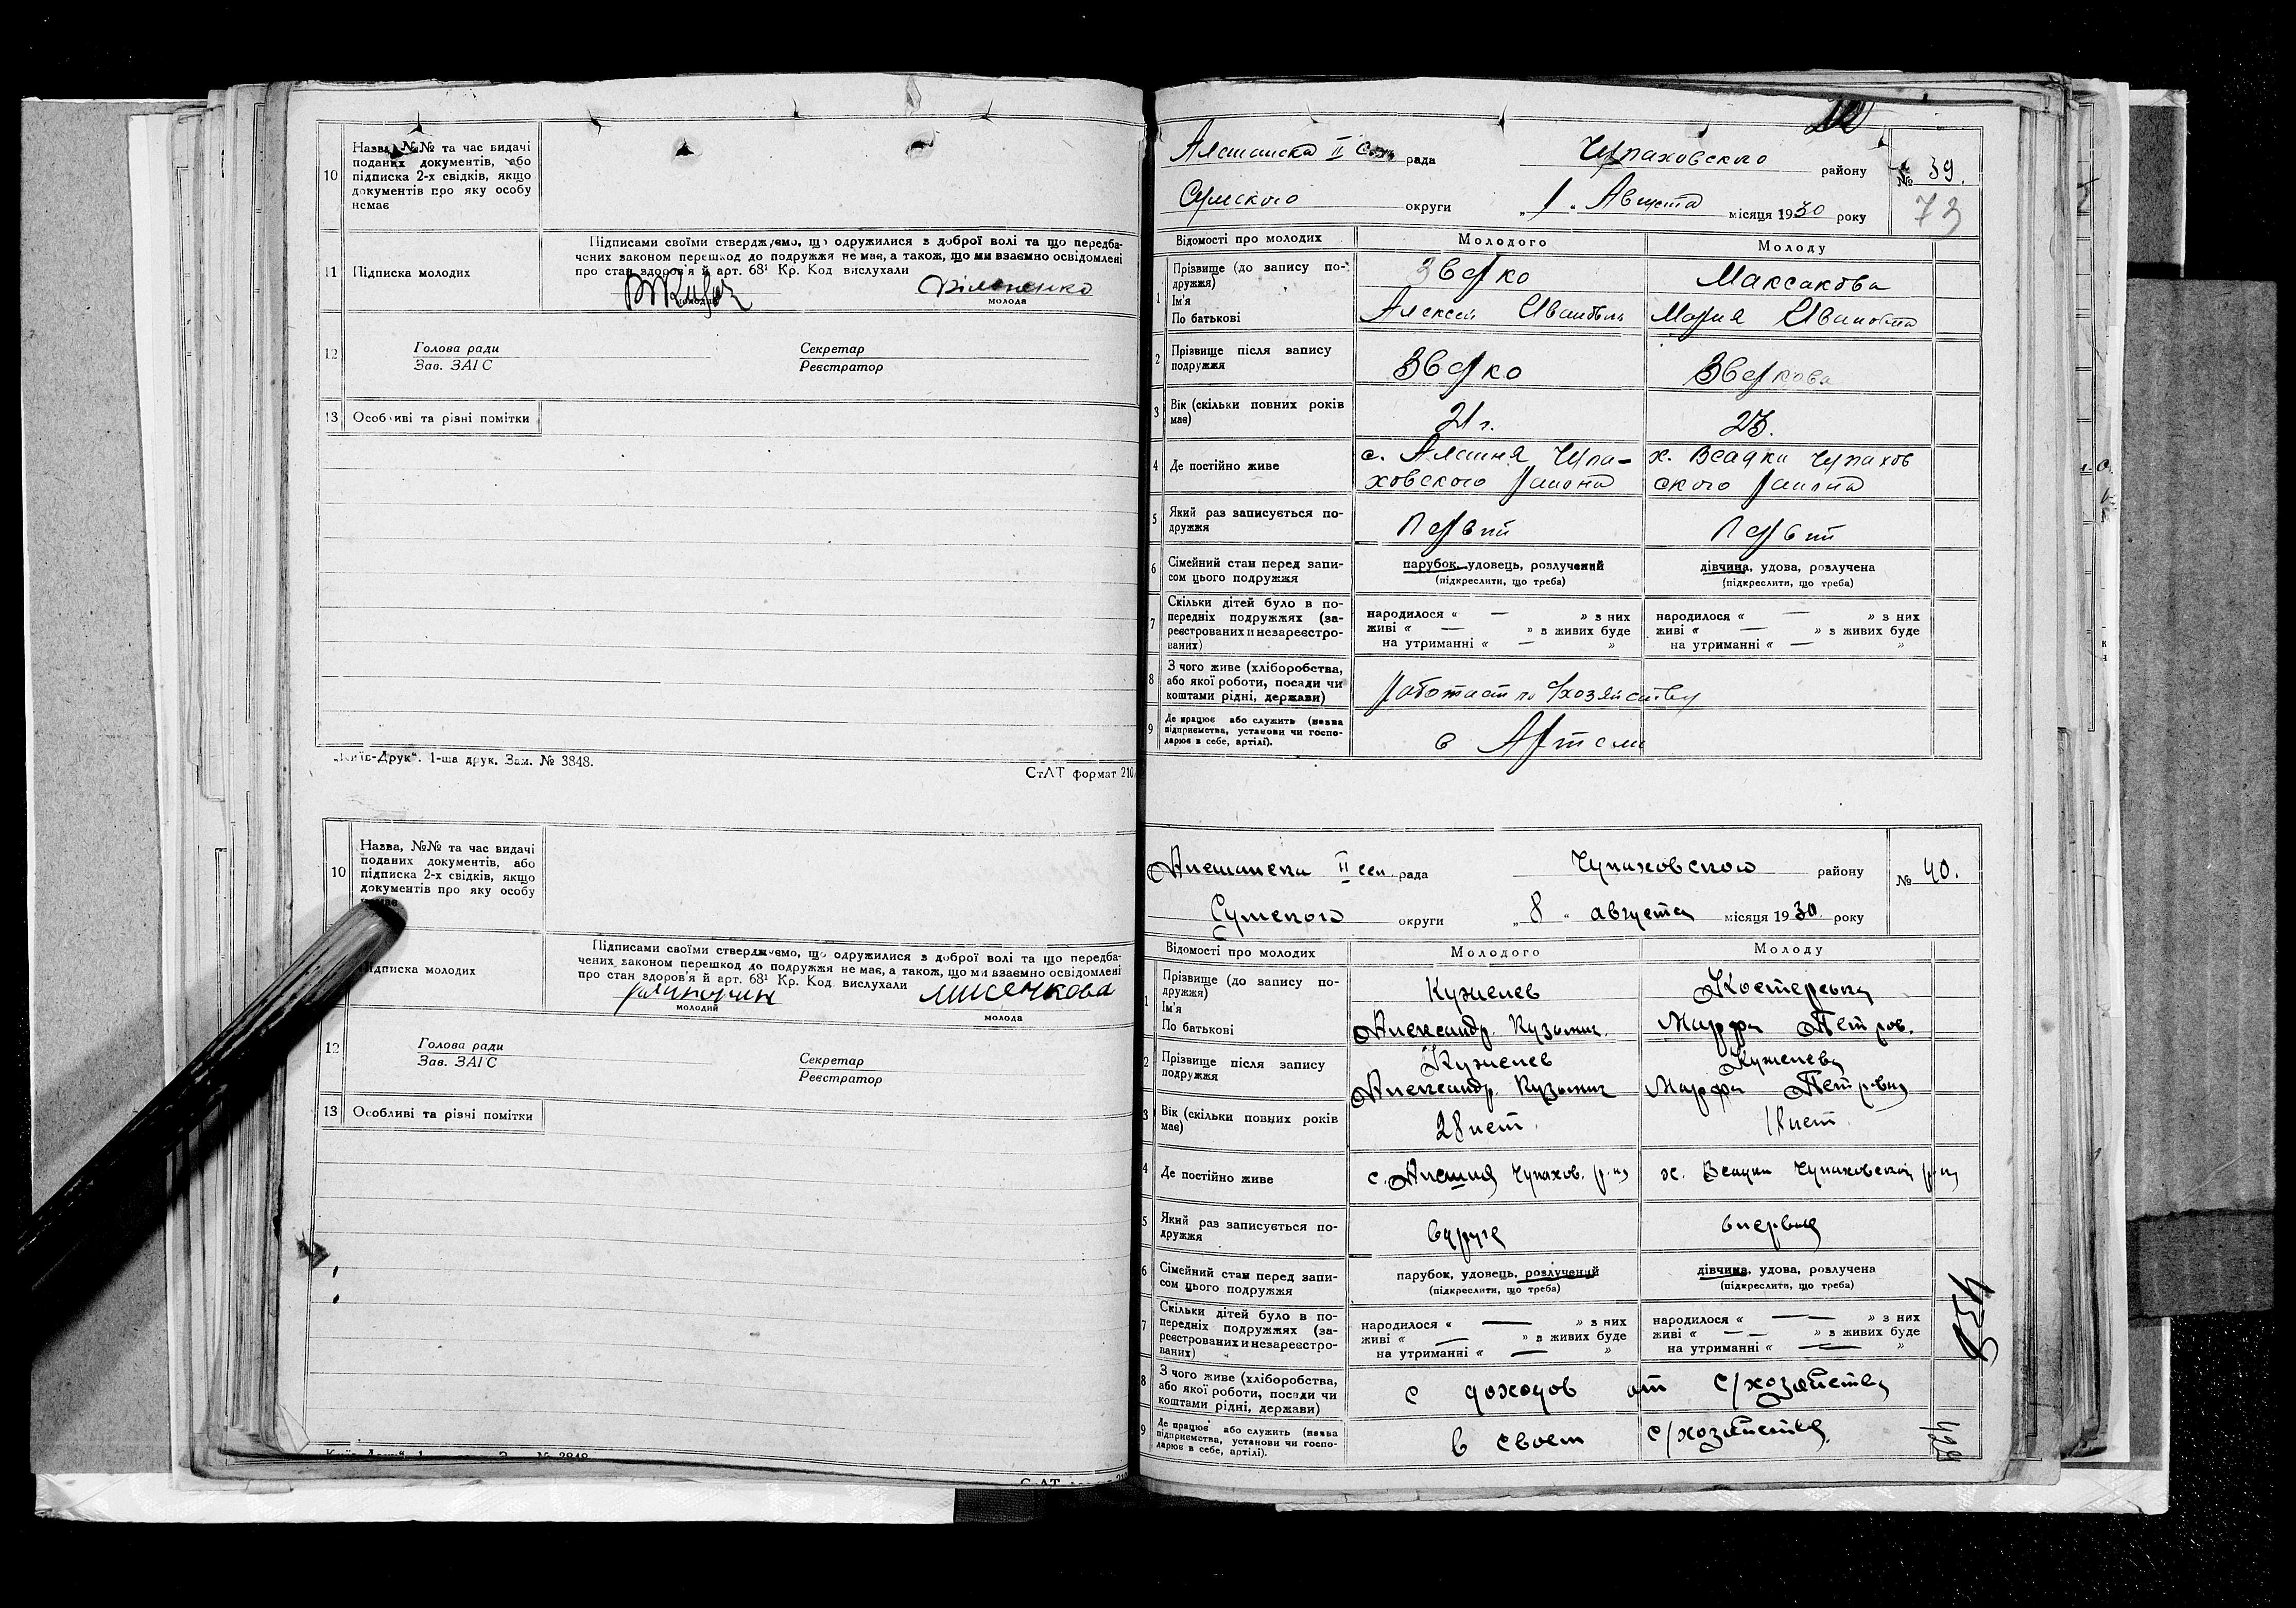 10
Назва, №№ та час видачі
поданих документів, або
підписка 2-х свідків, якщо
документів про яку особу
немає
11
Підписка молодих
Підписами своїми стверджуємо, що одружилися з доброї волі та що передба-
чених законом перешкод до подружжя не має, а також, що ми взаємно освідомлені
про стан здоров'я й арт. 68¹ Кр. Код вислухали
молодий
молода
12
Голова ради
Зав. ЗАГС
Секретар
Реєстратор
13
Особливі та різні помітки
„Київ-Друк“. 1-ша друк. Зам. № 3848.
СтАТ формат 210
10
Назва, №№ та час видачі
поданих документів, або
підписка 2-х свідків, якщо
документів про яку особу
немає
Підписка молодих
Підписами своїми стверджуємо, що одружилися з доброї волі та що передба-
чених законом перешкод до подружжя не має, а також, що ми взаємно освідомлені
про стан здоров'я й арт. 68¹ Кр. Код вислухали
молодий
молода
12
Голова ради
Зав. ЗАГС
Секретар
Реєстратор
13
Особливі та різні помітки
№ 3848
Алешанска II рада Чупаховского району
№ 39.
73
Сумского округи „1“ Августа місяця 1930 року
Відомості про молодих
Молодого
Молоду
1
Прізвище (до запису по-
дружжя)
Ім'я
По батькові
Зверко
Алексей Иванович
Максакова
Мария Ивановна
2
Прізвище після запису
подружжя
Зверко
Зверкова
3
Вік (скільки повних років
має)
21 г.
23.
4
Де постійно живе
с. Алешня Чупа-
ховского района
х. Всадки Чупахов
ского района
5
Який раз записується по-
дружжя
Первий
Первий
6
Сімейний стан перед запи-
сом цього подружжя
парубок, удовець, розлучений
(підкреслити, що треба)
дівчина, удова, розлучена
(підкреслити, що треба)
7
Скільки дітей було в по-
передніх подружжях (за-
реєстрованих и незареєстро-
ваних)
народилося « — » з них
живі « — » з живих буде
на утриманні « — »
народилося « — » з них
живі « — » з живих буде
на утриманні « — »
8
З чого живе (хліборобства,
або якої роботи, посади чи
коштами рідні, держави)
работает по хозяйству
9
Де працює або служить (назва
підприємства, установи чи госпо-
дарює в себе, артілі).
в Артели
Алешанска II сел. рада Чупаховского району
№ 40.
Сумского округи „8“ августа місяця 1930 року
Відомості про молодих
Молодого
Молоду
1
Прізвище (до запису по-
дружжя)
Ім'я
По батькові
Кужелев
Александр. Кузьмич.
Марфа Петров.
2
Прізвище після запису
подружжя
Кужелев
Александр. Кузьмич
Кужелева
Марфа Петровна
3
Вік (скільки повних років
має)
28 лет.
18 лет.
4
Де постійно живе
с. Алешня Чупахов. р-на
х. Всадки Чупаховской р-на
5
Який раз записується по-
дружжя
вдруге
впервые
6
Сімейний стан перед запи-
сом цього подружжя
парубок, удовець, розлучений
(підкреслити, що треба)
дівчина, удова, розлучена
(підкреслити, що треба)
7
Скільки дітей було в по-
передніх подружжях (за-
реєстрованих и незареєстро-
ваних)
народилося « — » з них
живі « — » з живих буде
на утриманні « — »
народилося « — » з них
живі « — » з живих буде
на утриманні « — »
8
З чого живе (хліборобства,
або якої роботи, посади чи
коштами рідні, держави)
с доходов от с/хозяйства
9
Де працює або служить (назва
підприємства, установи чи госпо-
дарює в себе, артілі).
в своем с/хозяйстве.